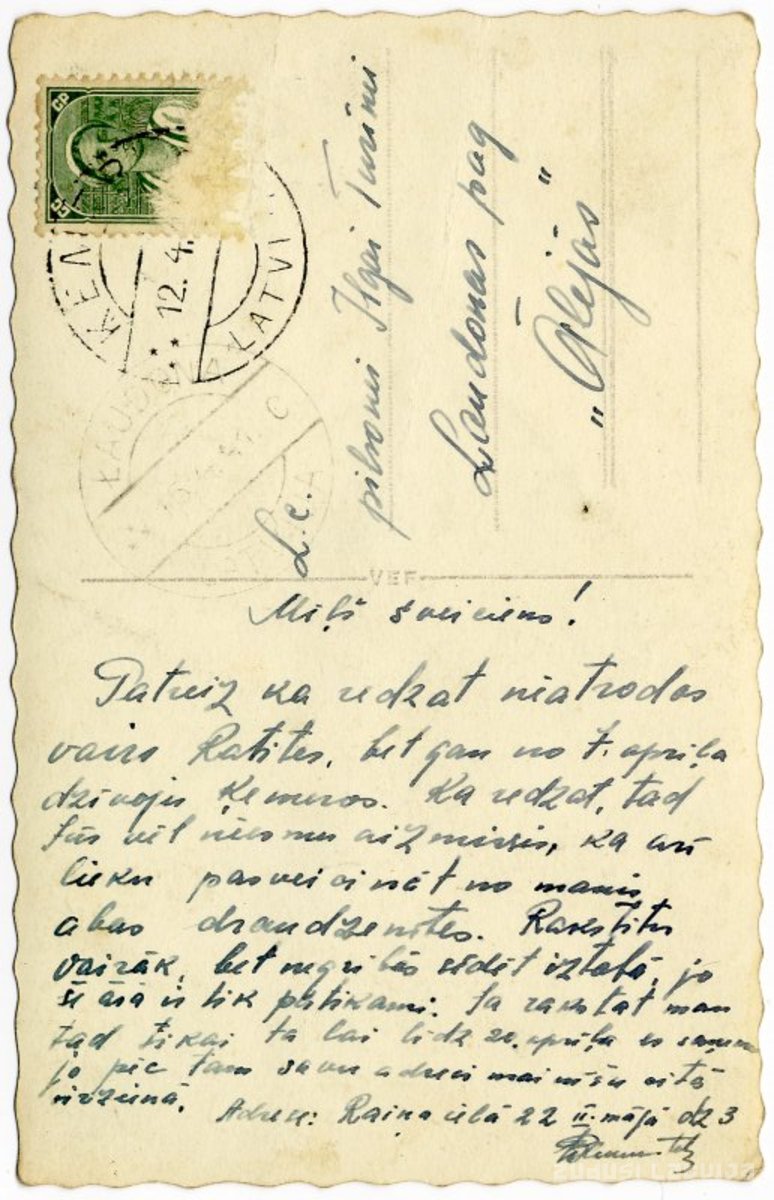 ĶEM
12.4.
LATVI
ĻAUDONA
C
L.c.
pilsonei Ilgai Tūriņai
Ļaudonas pag
„Ālejās"
VEF
Mīļš sveiciens!
Patreiz kā redzat neatrodos
vairs Ratītes, bet gan no 7. apriļa
dzīvoju Ķemeros. Kā redzat, tad
Jūs vēl neesmu aizmirsis, kā arī
lieku pasveicināt no manis
abas draudzenītes. Rakstītu
vairāk, bet negribās sēdēt iztabā, jo
šē ārā ir tik patīkami. Ja rakstat man
tad tikai tā lai līdz 20. apriļa es saņemu
jo pēc tam savu adresi mainīšu citā
virzienā.
Adrese: Raiņa ielā 22 II. mājā dz 3
ZUDUSI LATVIJA